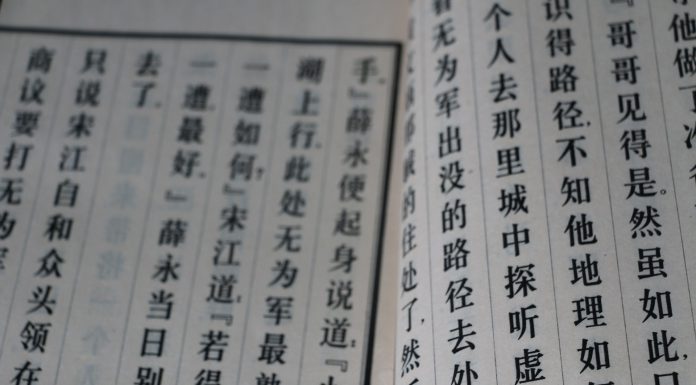 他做了准
『哥哥见得是。然虽如此，只
识得路径，不知他地理如
个人去那里城中探听虚
看无为军出没的路径去处
文 那贼的住处了，然后
手。』薛永便起身说道：『小
湖上行，此处无为军最熟
一遭如何？』宋江道：『若得
一遭，最好。』薛永当日别
去了。
只说宋江自和众头领在
商议要打无为军